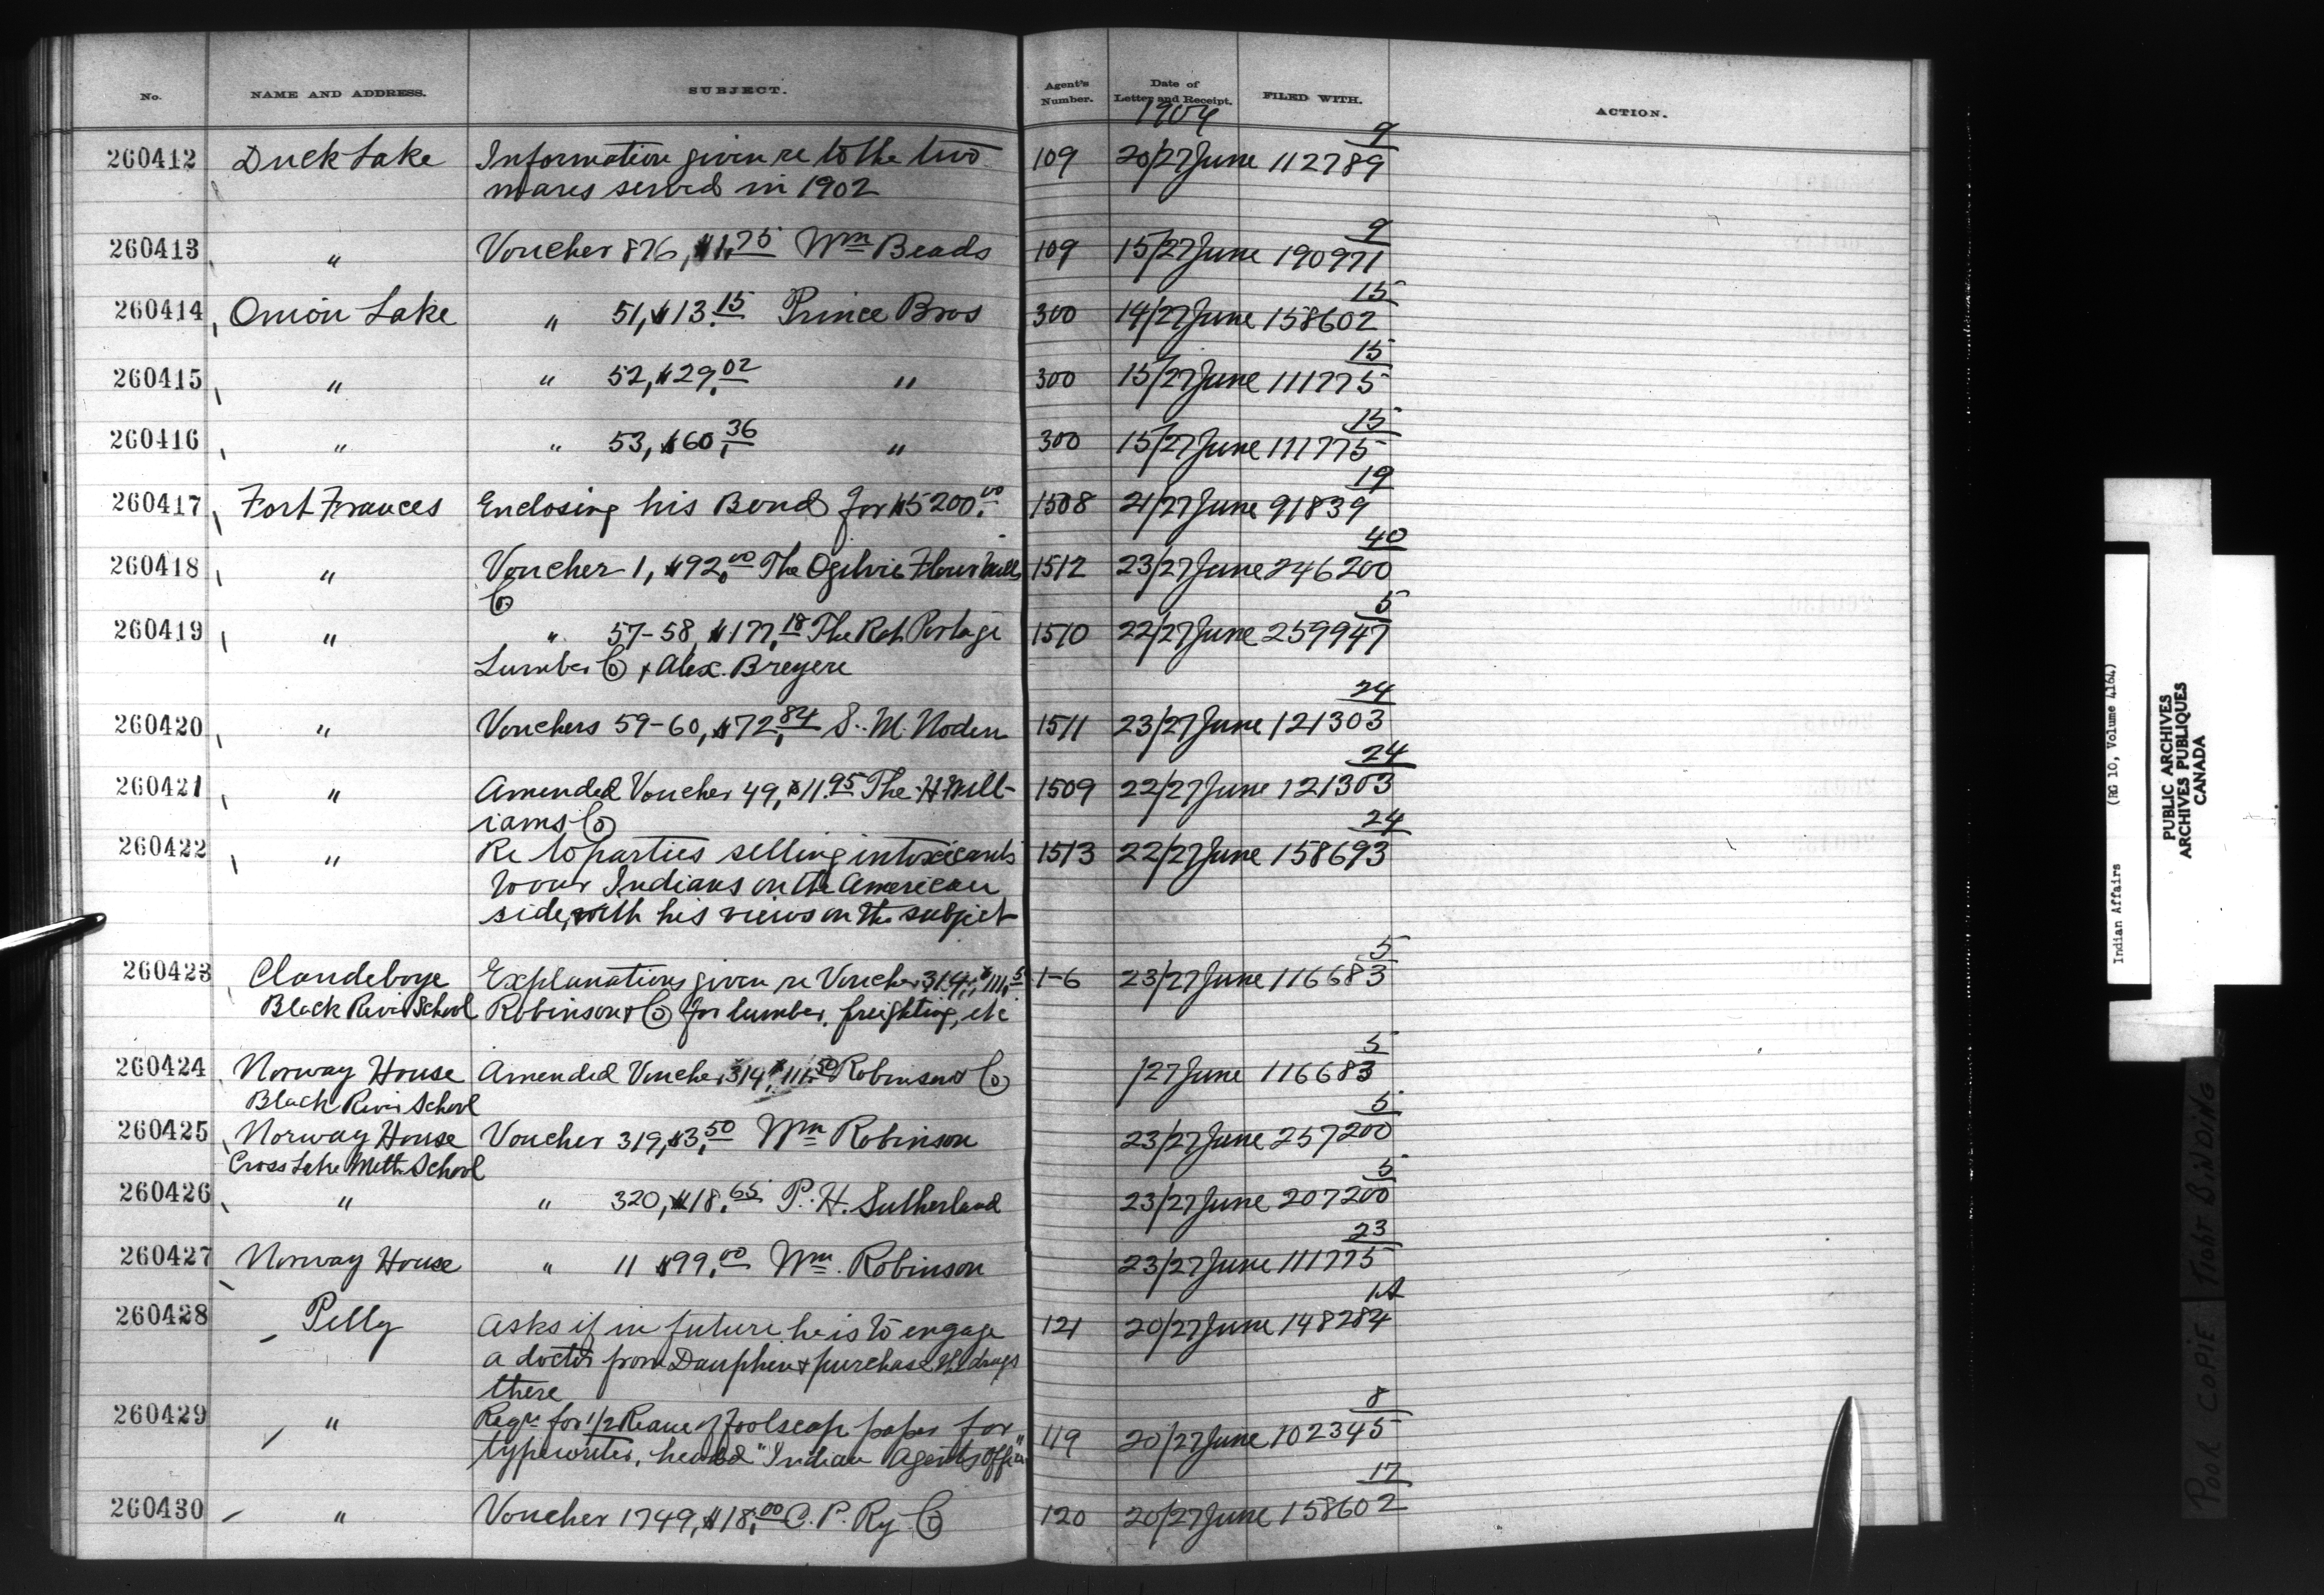 No. NAME AND ADDRESS. SUBJECT. Agent's Number. Date of Letter and Receipt. FILED WITH. ACTION.
1904
9
260412 Duck Lake Information given re to the two 109 20/27 June 112789
mares served in 1902
9
260413 " Voucher 876, $1.75 Wm Beads 109 15/27 June 190971
15
260414 Onion Lake " 51, $13.15 Prince Bros 300 14/27 June 158602
15
260415 " " 52, $29.02 " 300 15/27 June 111775
15
260416 " " 53, $60.36 " 300 15/27 June 111775
19
260417 Fort Frances Enclosing his Bond for $5200.00 1508 21/27 June 91839
40
260418 " Voucher 1, $92.00 The Ogilvie Flour Mills 1512 23/27 June 246200
Co
5
260419 " " 57-58, $177.18 The Rat Portage 1510 22/27 June 259947
Lumber Co & Alex. Breyere
24
260420 " Vouchers 59-60, $72.84 S. M. Noden 1511 23/27 June 121303
24
260421 " Amended Voucher 49, $11.95 The H Will- 1509 22/27 June 121303
iams Co
24
260422 " Re to parties selling intoxicants 1513 22/27 June 158693
to our Indians on the American
side, with his views on the subject
5
260423 Clandeboye Explanations given re Voucher 314, $111.5 1-6 23/27 June 116683
Black River School Robinson & Co for lumber, freighting, etc
5
260424 Norway House Amended Voucher 314, $111.50 Robinson & Co /27 June 116683
Black River School
5
260425 Norway House Voucher 319, $3.50 Wm Robinson 23/27 June 257200
Cross Lake Meth. School
5
260426 " " 320, $18.65 P. H. Sutherland 23/27 June 207200
23
260427 Norway House " 11 $99.00 Wm. Robinson 23/27 June 111775
1A
260428 Pelly Asks if in future he is to engage 121 20/27 June 148284
a doctor from Dauphin & purchase the drugs
there
8
260429 " Reqn for 1/2 Ream of foolscap paper for 119 20/27 June 102345
typewriter, headed "Indian Agents Office"
17
260430 " Voucher 1749, $18.00 C. P. Ry. Co 120 20/27 June 158602
Indian Affairs (RG 10, Volume 4164)
PUBLIC ARCHIVES
ARCHIVES PUBLIQUES
CANADA
POOR COPIE TIGHT BINDING